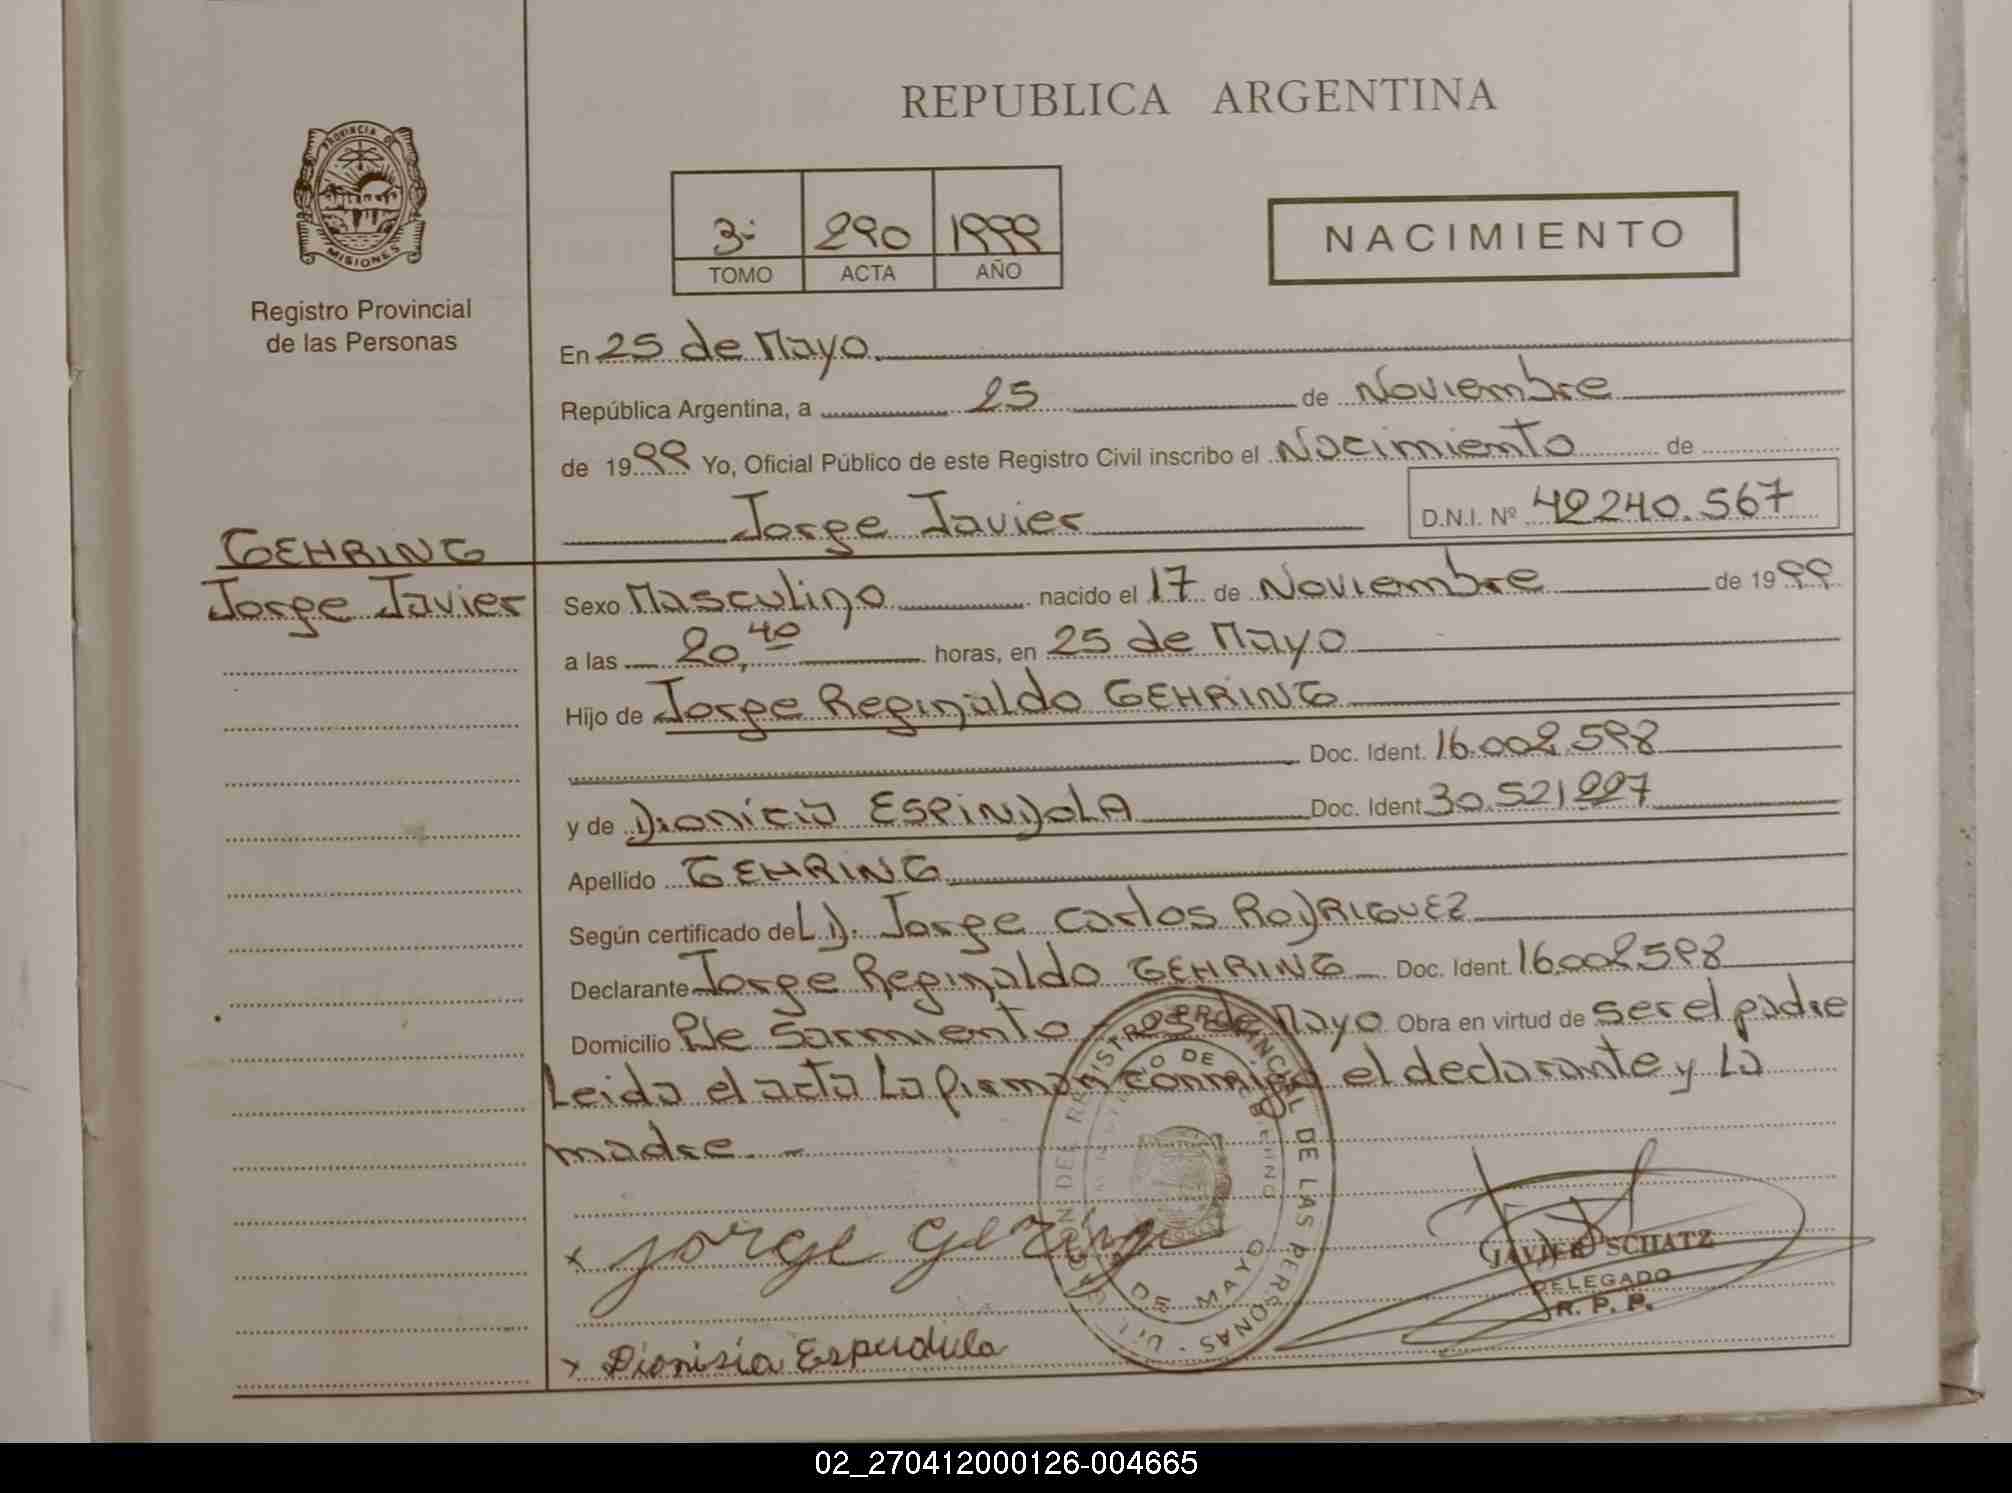 REPUBLICA ARGENTINA
PROVINCIA DE
MISIONES
Registro Provincial
de las Personas
3- 290 1999
TOMO ACTA AÑO
NACIMIENTO
En 25 de Mayo
República Argentina, a 25 de Noviembre
de 1999 Yo, Oficial Público de este Registro Civil inscribo el Nacimiento de
Jorge Javier D.N.I. Nº 42240.567
GEHRING
Jorge Javier
Sexo Masculino nacido el 17 de Noviembre de 1999
a las 20,40 horas, en 25 de Mayo
Hijo de Jorge Reginaldo GEHRING
Doc. Ident. 16.002.598
y de Dionicia ESPINDOLA Doc. Ident. 30.521997
Apellido GEHRING
Según certificado de L.D. Jorge Carlos RODRIGUEZ
Declarante Jorge Reginaldo GEHRING Doc. Ident. 16.002598
Domicilio Pje Sarmiento - 25 de Mayo Obra en virtud de ser el padre
Leida el acta La firman conmigo el declarante y La
madre. -
REGISTRO PROVINCIAL DE LAS PERSONAS
DE MAYO
x Jorge Gering
JAVIER SCHATZ
DELEGADO
R. P. P.
x Dionisia Espindula
02_270412000126-004665